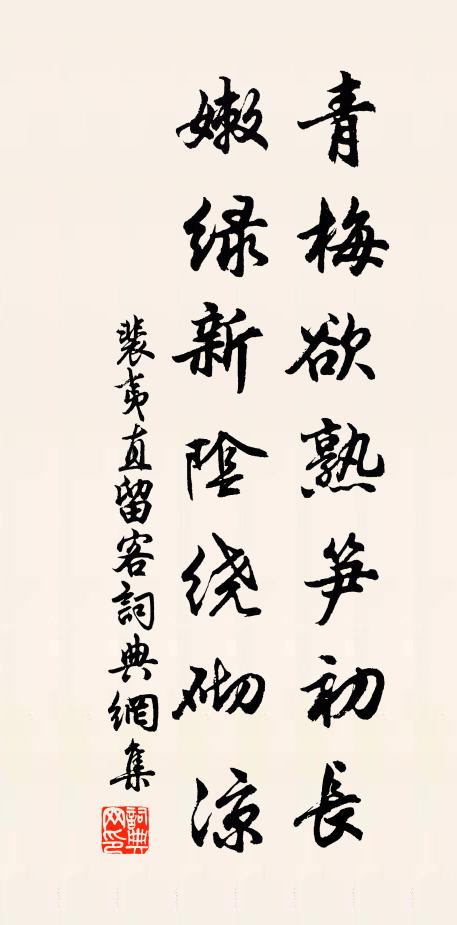 青梅欲熟笋初長
嫩绿新陰绕砌凉
裴夷直留客詞典網集
詞典網印